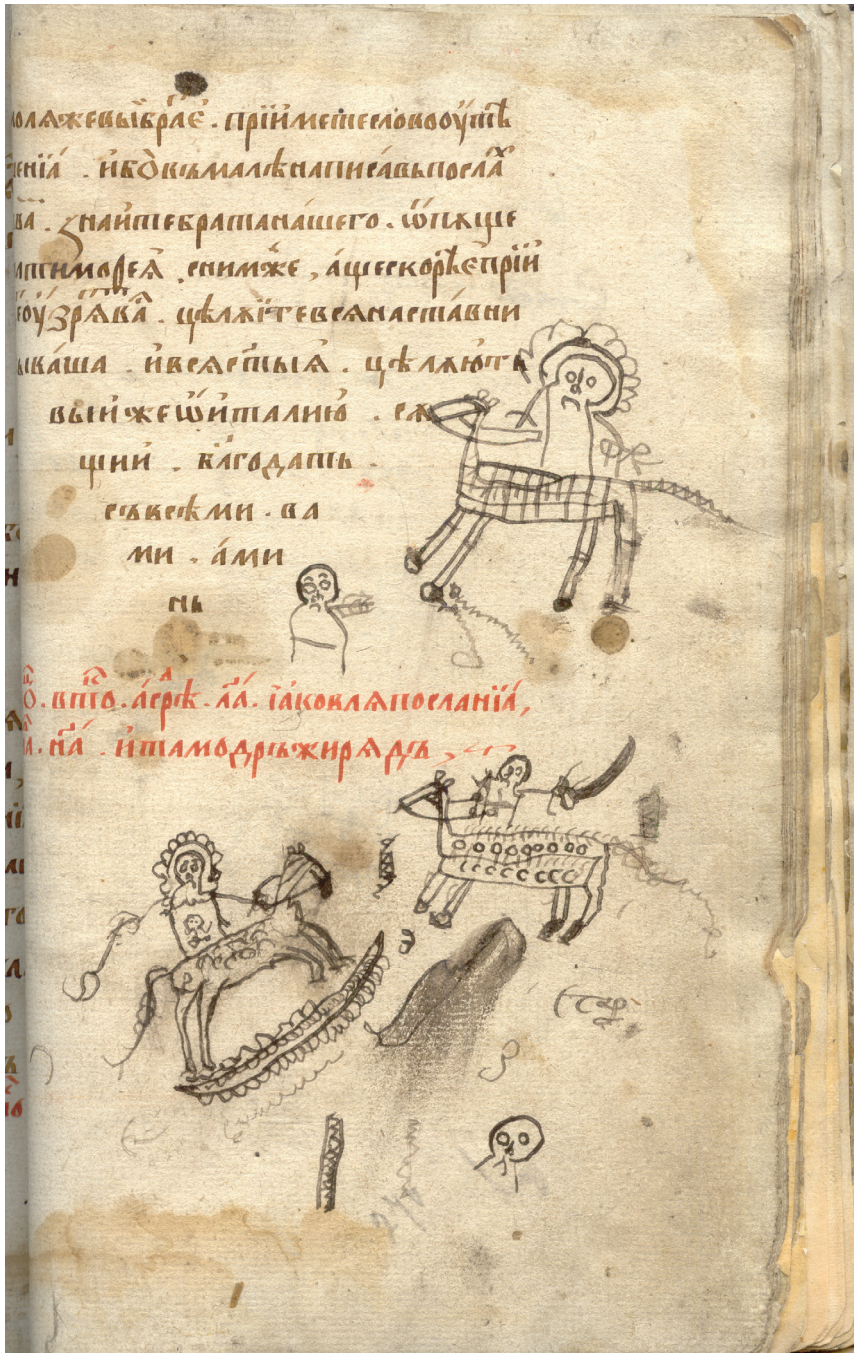 олѧжевы́ брⷶ҇є . прїи́метесловооу́тѣ
енїа́ . и́бовъмалѣнаписа́вьпослаⷯ
ва́ . знаи́тебратана́шего . ѿпѧще
тимоѳеѧ́ . снимже , а́щескорѣепрїи́
оузрⷮѧва . цѣлѧи́тевсѧнаста́вни
ыва́ша . и́всѧсты́ѧ . цѣлѧю́ть
выи́жеѿи́талию́ . сѧ
щии́ . бл҃годать .
съвсѣми . ва
ми . а́ми
нь
впⷮо . а́срⷣѣ . л҃а . їа́ковлѧпосланїа́,
и́тамодръжирѧдъ